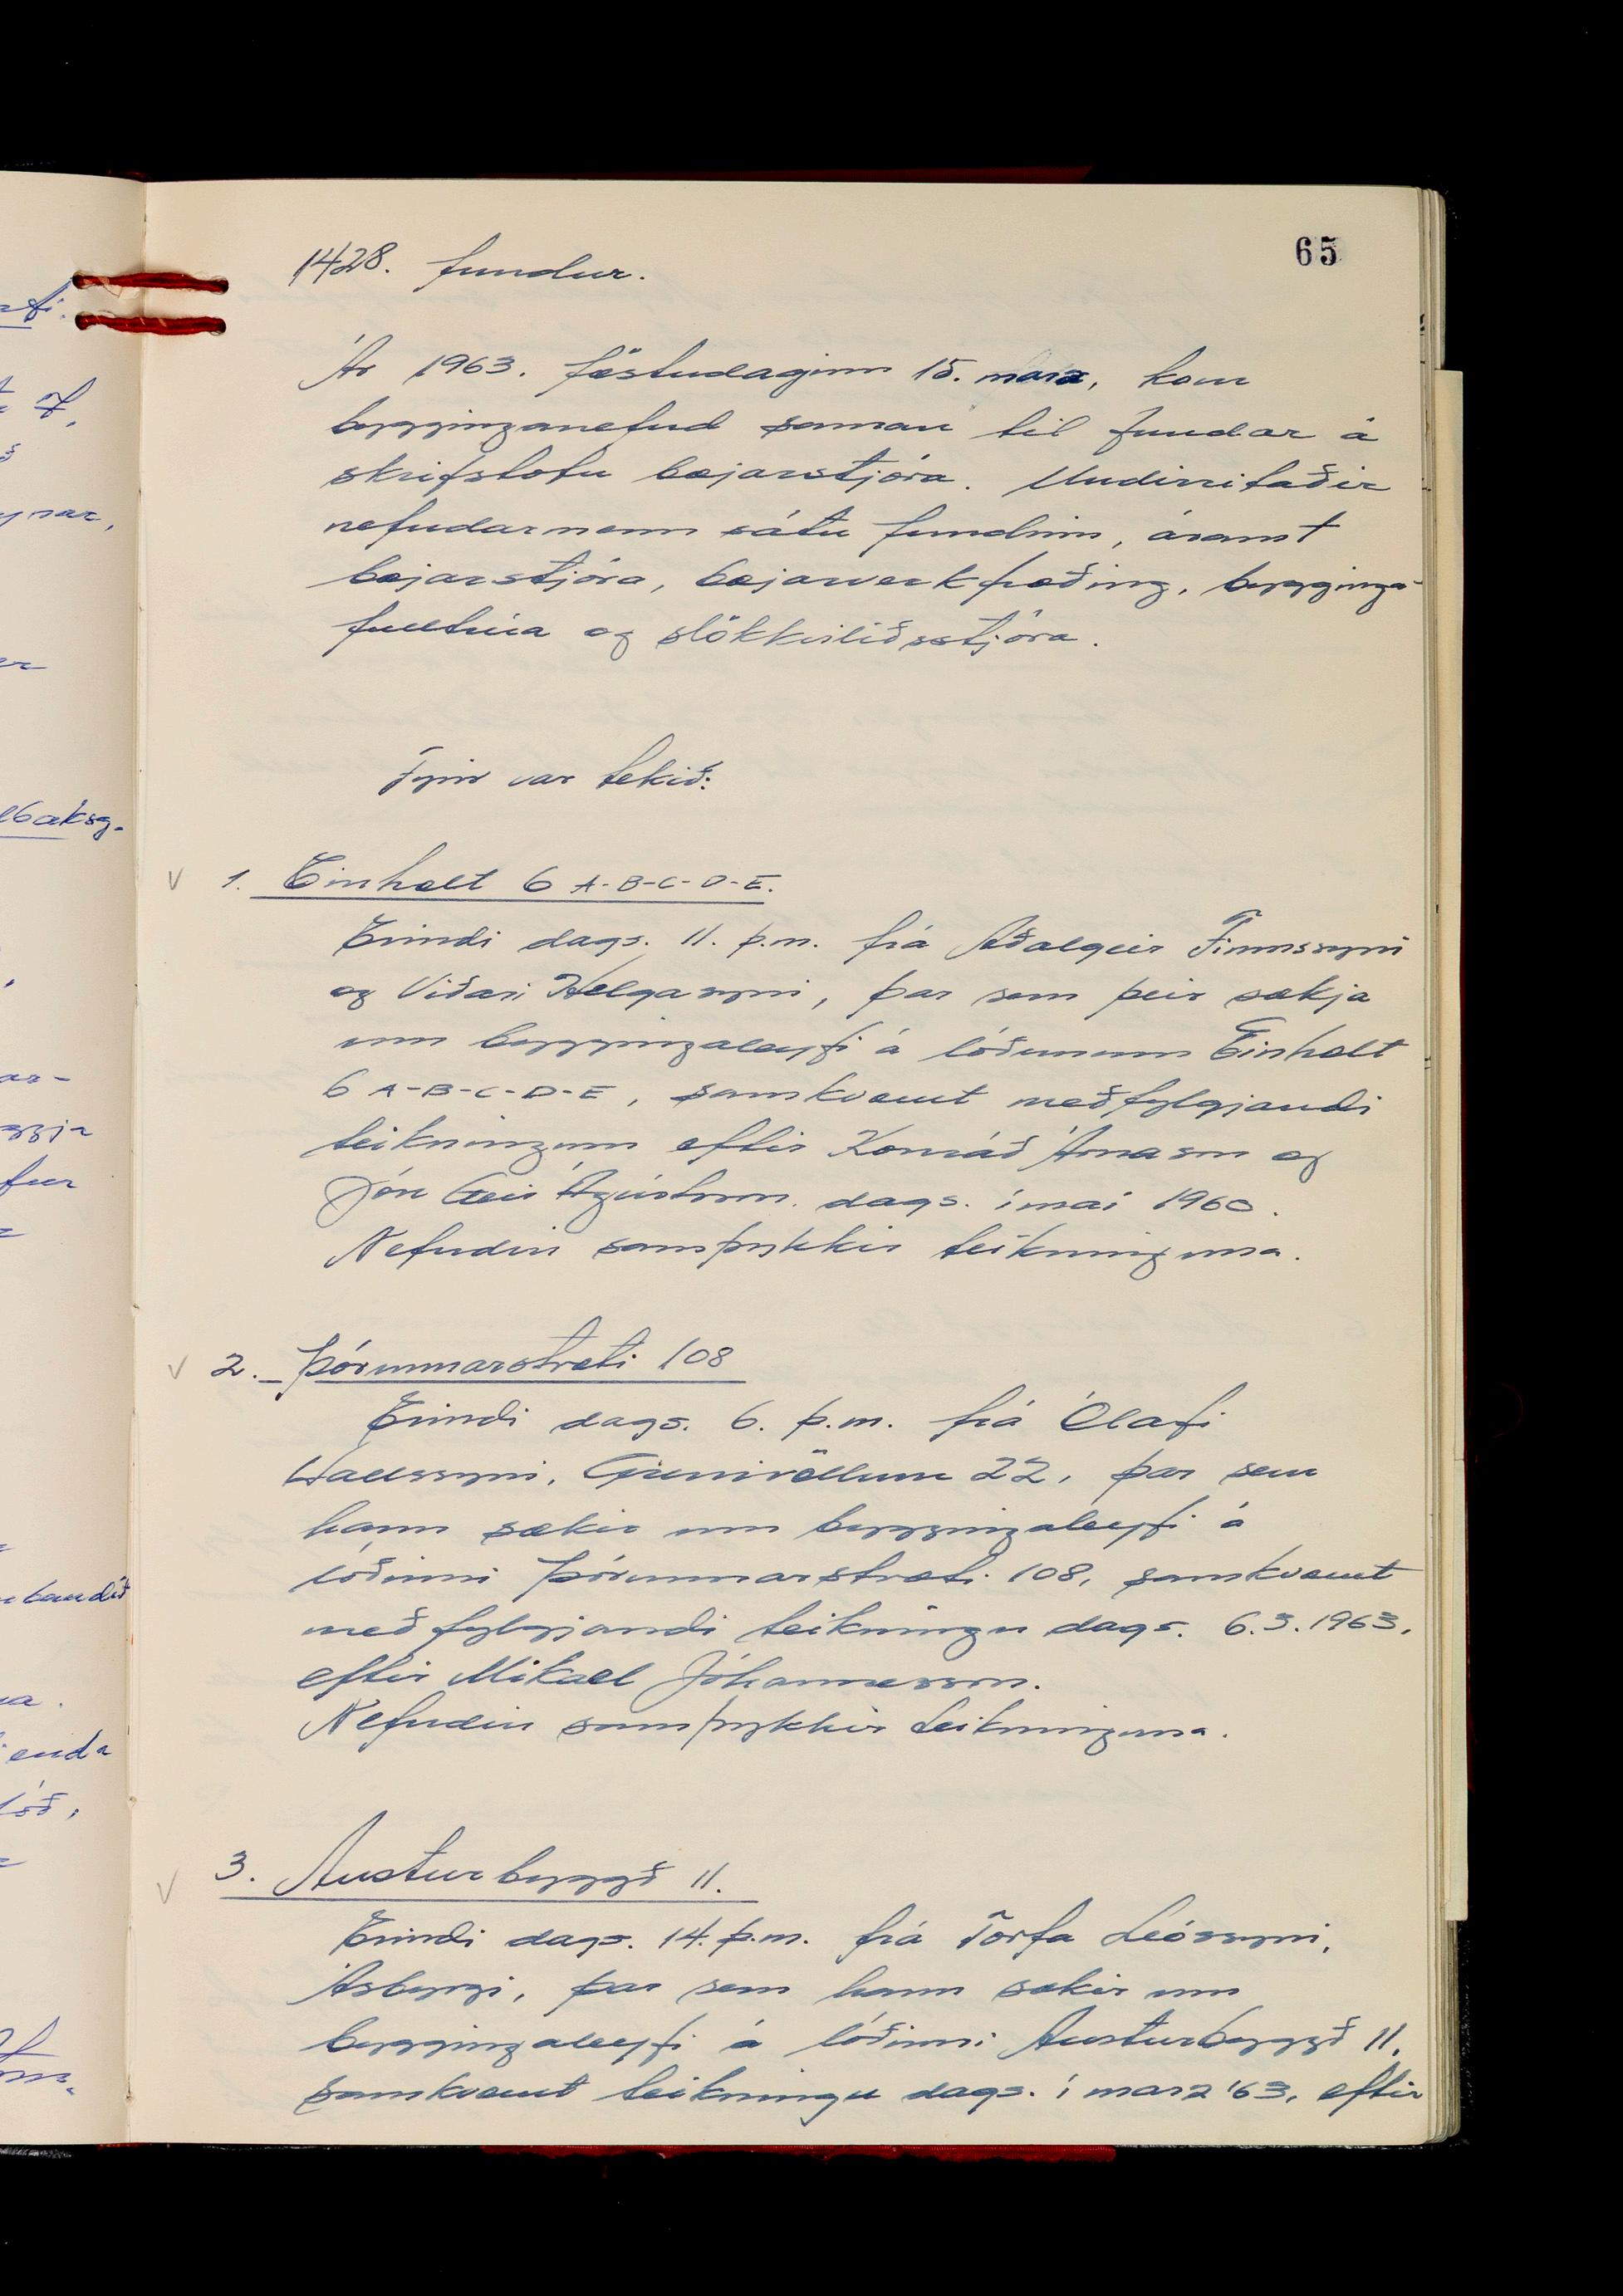 65
1428. fundur.
Ár 1963. föstudaginn 15. marz, kom
bygginganefnd saman til fundar á
skrifstofu bæjarstjóra. Undirritaðir
nefndarmenn sátu fundinn, ásamt
bæjarstjóra, bæjarverkfræðing, bygginga-
fulltrúa og slökkviliðsstjóra.
Fyrir var tekið:
v 1. Einholt 6 A-B-C-D-E.
Erindi dags. 11. þ.m. frá Aðalgeir Finnssyni
og Viðari Helgasyni, þar sem þeir sækja
um byggingaleyfi á lóðunum Einholt
6 A-B-C-D-E, samkvæmt meðfylgjandi
teikningum eftir Konráð Árnason og
Jón Geir Ágústsson. dags. í maí 1960.
Nefndin samþykkir teikninguna.
v 2. Þórunnarstræti 108
Erindi dags. 6. þ.m. frá Ólafi
Hallssyni, Grenivöllum 22, þar sem
hann sækir um byggingaleyfi á
lóðinni Þórunnarstræti 108, samkvæmt
meðfylgjandi teikningu dags. 6.3.1963,
eftir Mikael Jóhannesson.
Nefndin samþykkir teikninguna.
v 3. Austurbyggð 11.
Erindi dags. 14. þ.m. frá Torfa Leóssyni,
Ásbyrgi, þar sem hann sækir um
byggingaleyfi á lóðinni Austurbyggð 11,
samkvæmt teikningu dags. í marz '63, eftir